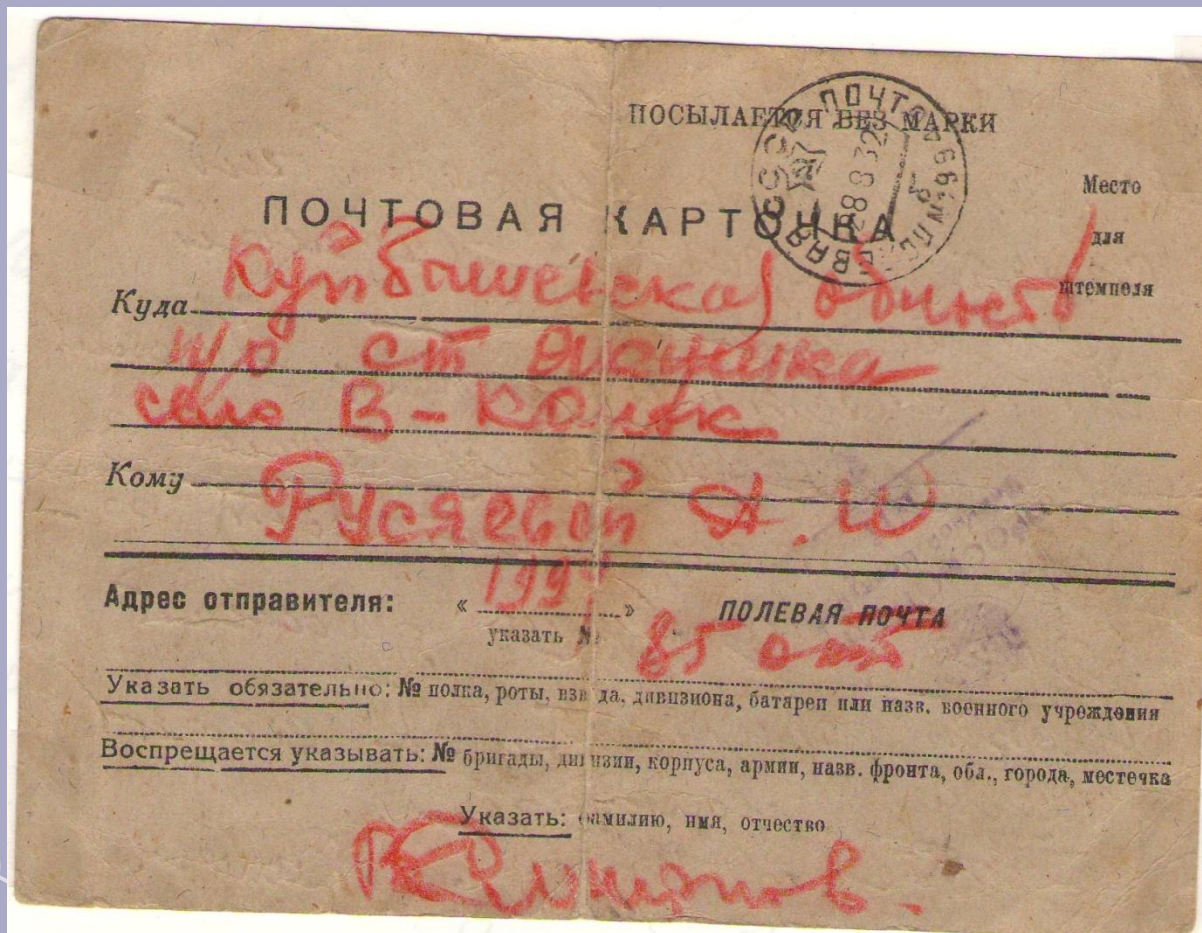 ПОСЫЛАЕТСЯ БЕЗ МАРКИ
ПОЧТОВАЯ КАРТОЧКА
Место
для
штемпеля
СССР ПОЛЕВАЯ ПОЧТА
Куда Куйбышевская область
п/о ст
село В-
Кому Русяевой А.
Адрес отправителя: « » ПОЛЕВАЯ ПОЧТА
указать №
85
Указать обязательно: № полка, роты, взвода, дивизиона, батареи или назв. военного учреждения
Воспрещается указывать: № бригады, дивизии, корпуса, армии, назв. фронта, обл., города, местечка
Указать: фамилию, имя, отчество